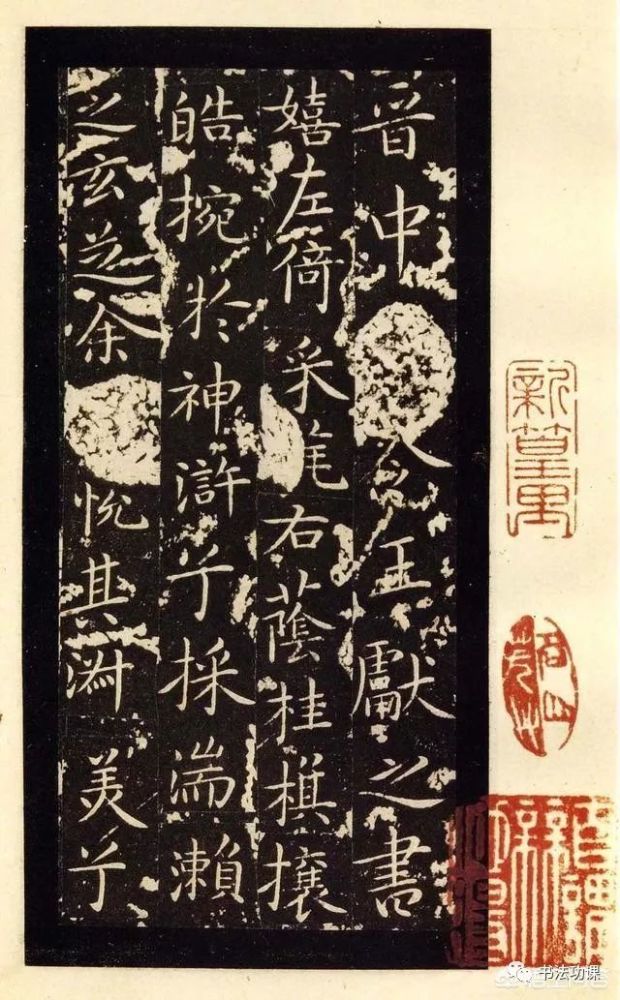 晋中令王獻之書
嬉左倚采旄右蔭桂棋攘
皓捥於神滸兮採湍瀨
之玄芝余悅其淑美兮
书法功课